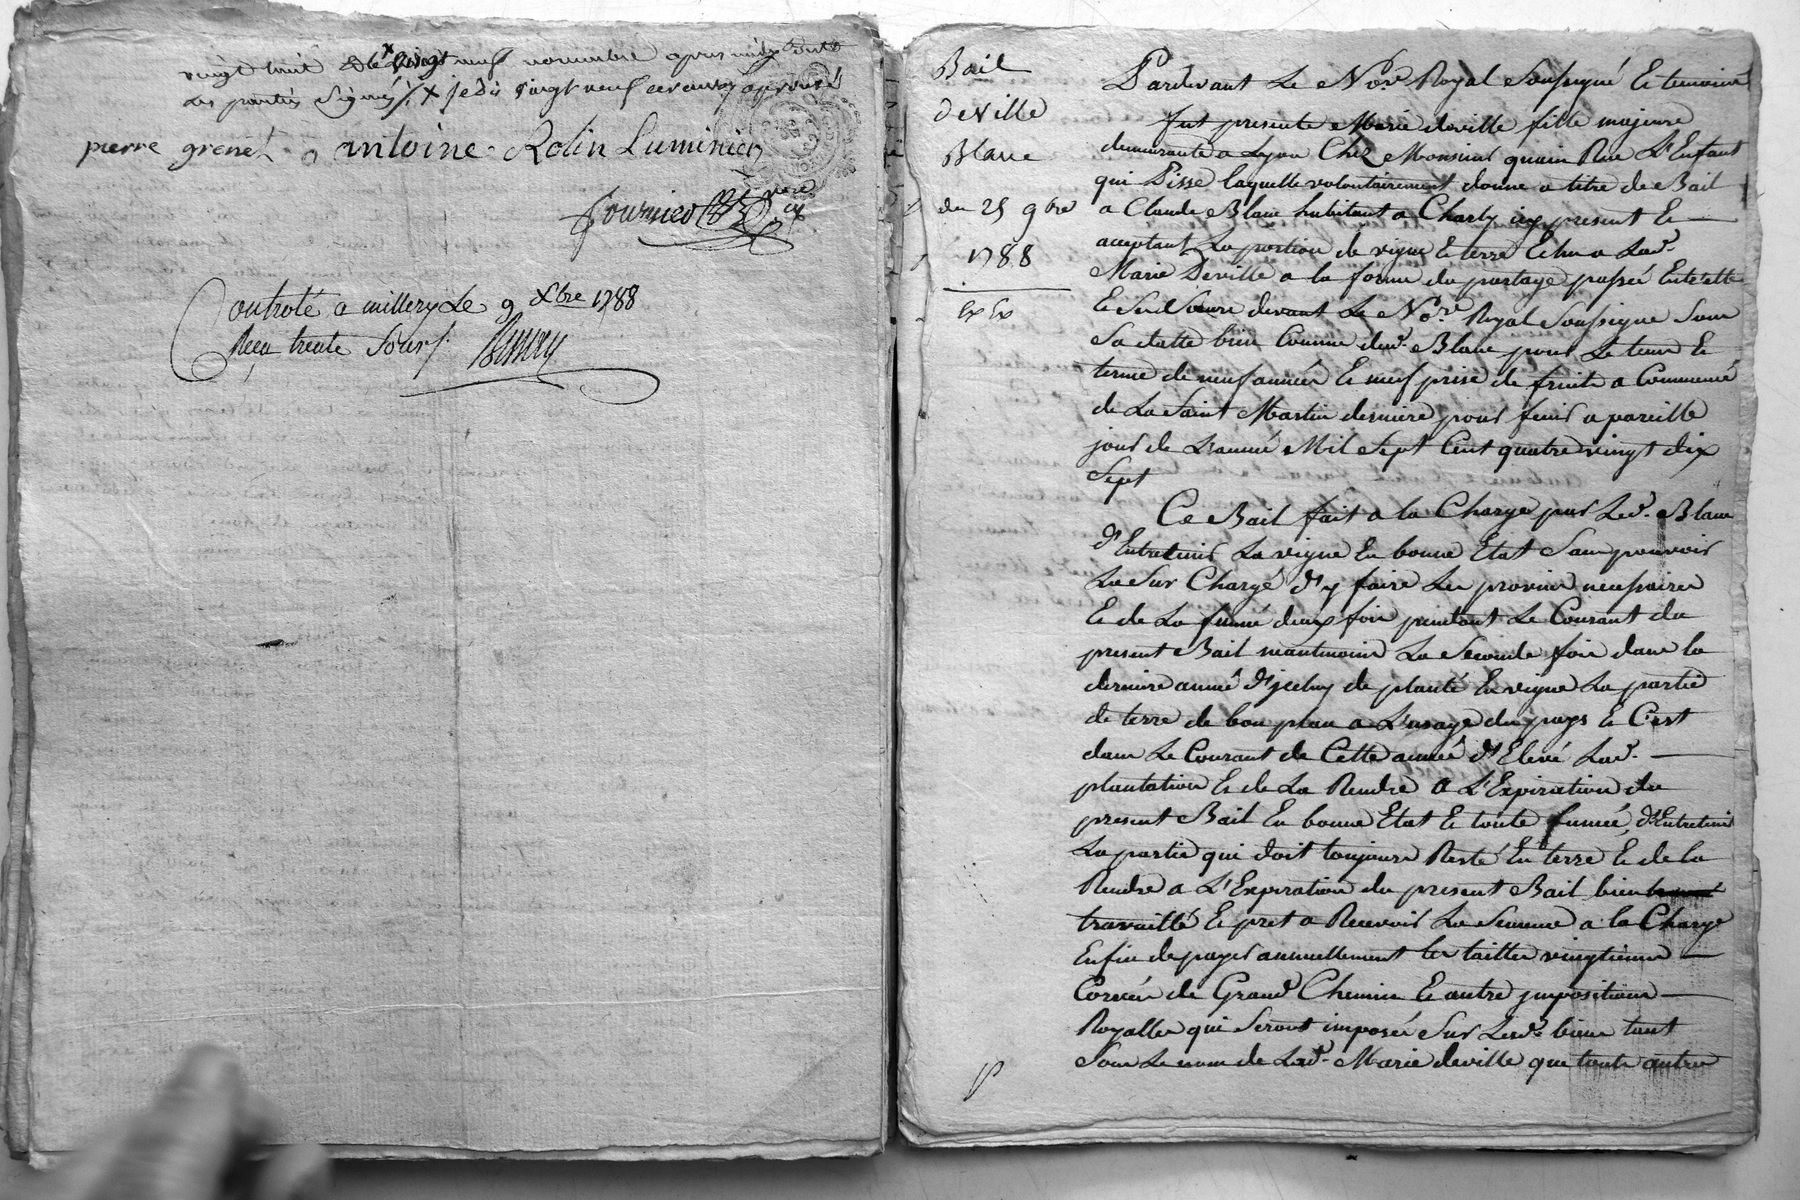 vingt huit et le vingt neuf novembre apres midy dont
les parties signés % x je dis vingt neuf approuvé
pierre grenet antoine Rolin Luminier
fournier
Controlé a millery Le 9 Xbre 1788
Reçu trente Sous
Bail
deville
Blanc
du 25 9bre
1788
Pardevant Le Nore Royal Soussigné Et temoins
fut presente Marie deville fille majeure
demeurante a Lyon Chez Monsieur quain Rue L'Enfant
qui Pisse laquelle volontairement donne a titre de Bail
a Claude Blanc habitant a Charly icy present Et
acceptant La portion de vigne Et terre Echue a Lad.
Marie Deville a la forme du partage passée Entrelle
Et Sesd Soeurs devant Le Nore Royal Soussigne Sans
Sa datte bien Connue dud. Blanc pour Le tems Et
terme de neuf années Et neuf prise de fruits a Commencé
de La Saint Martin derniere pour finir a pareille
jour de L'année Mil Sept Cent quatre vingt dix
Sept
Ce Bail fait a la Charge par Led. Blanc
d'Entretenir La vigne En bonne Etat Sans pouvoir
La Sur Chargé d'y faire Les provins necessaires
Et de La fumé deux fois pendant Le Courant du
present Bail neantmoins La Seconde fois dans la
derniere année d'jceluy de planté En vigne La partie
de terre de bon plan a L'usage du pays Et C'est
dans Le Courant de Cette année d'Elevé Lad.
plantation Et de La Rendre a L'Expiration du
present Bail En bonne Etat Et toute fumée, d'Entretenir
La partie qui doit toujours Resté En terre Et de la
Rendre a L'Expiration du present Bail bien
travaillé Et pret a Recevoir La Semence a la Charge
Enfin de payer annuellement les tailles vingtiemes
Corvées de Grand Chemin Et autre jmpositions
Royalles qui Seront imposés Sur Lesd. biens tant
Sous Le nom de Lad. Marie deville que toute autres